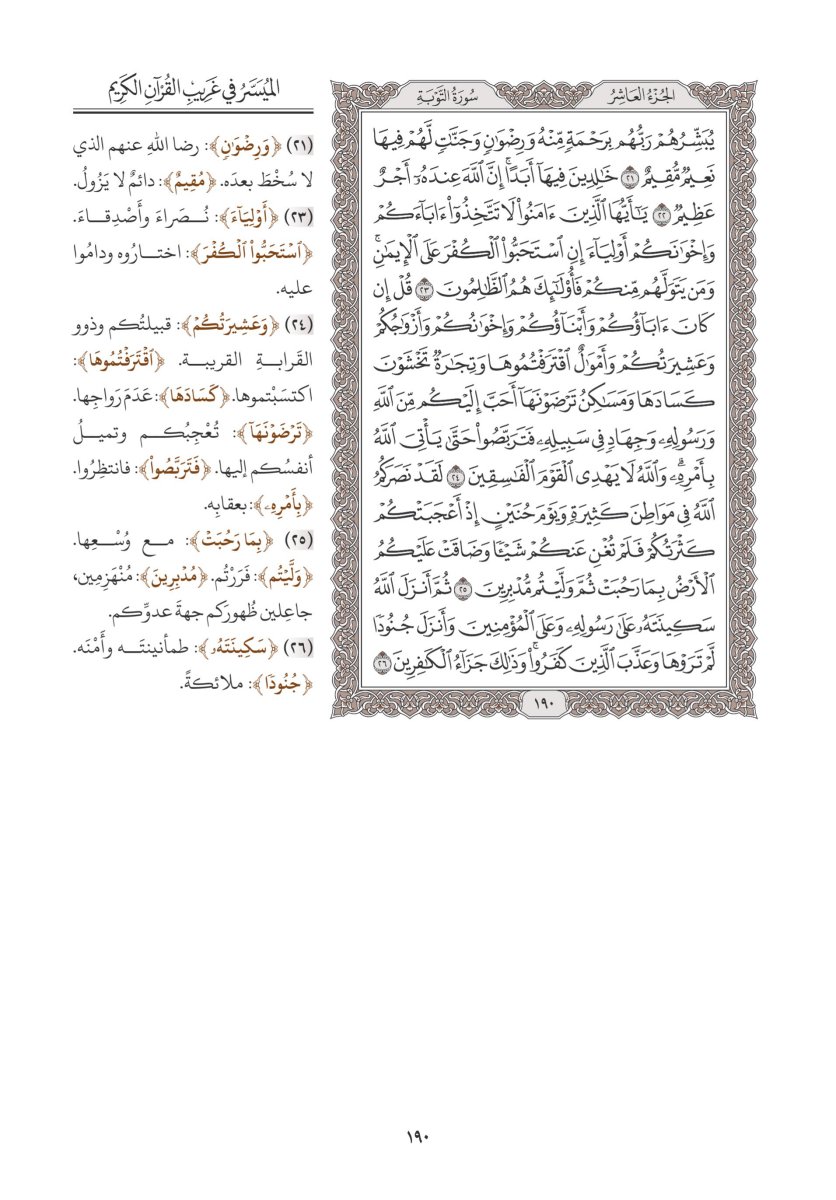 الجُزْءُ العَاشِرُ
سُورَةُ التَّوْبَةِ
يُبَشِّرُهُمْ رَبُّهُم بِرَحْمَةٖ مِّنْهُ وَرِضْوَٰنٖ وَجَنَّٰتٖ لَّهُمْ فِيهَا
نَعِيمٞ مُّقِيمٌ ٢١ خَٰلِدِينَ فِيهَآ أَبَدًاۚ إِنَّ ٱللَّهَ عِندَهُۥٓ أَجْرٌ
عَظِيمٞ ٢٢ يَٰٓأَيُّهَا ٱلَّذِينَ ءَامَنُواْ لَا تَتَّخِذُوٓاْ ءَابَآءَكُمْ
وَإِخْوَٰنَكُمْ أَوْلِيَآءَ إِنِ ٱسْتَحَبُّواْ ٱلْكُفْرَ عَلَى ٱلْإِيمَٰنِۚ
وَمَن يَتَوَلَّهُم مِّنكُمْ فَأُوْلَٰٓئِكَ هُمُ ٱلظَّٰلِمُونَ ٢٣ قُلْ إِن
كَانَ ءَابَآؤُكُمْ وَأَبْنَآؤُكُمْ وَإِخْوَٰنُكُمْ وَأَزْوَٰجُكُمْ
وَعَشِيرَتُكُمْ وَأَمْوَٰلٌ ٱقْتَرَفْتُمُوهَا وَتِجَٰرَةٞ تَخْشَوْنَ
كَسَادَهَا وَمَسَٰكِنُ تَرْضَوْنَهَآ أَحَبَّ إِلَيْكُم مِّنَ ٱللَّهِ
وَرَسُولِهِۦ وَجِهَادٖ فِي سَبِيلِهِۦ فَتَرَبَّصُواْ حَتَّىٰ يَأْتِيَ ٱللَّهُ
بِأَمْرِهِۦۗ وَٱللَّهُ لَا يَهْدِي ٱلْقَوْمَ ٱلْفَٰسِقِينَ ٢٤ لَقَدْ نَصَرَكُمُ
ٱللَّهُ فِي مَوَاطِنَ كَثِيرَةٖ وَيَوْمَ حُنَيْنٍ إِذْ أَعْجَبَتْكُمْ
كَثْرَتُكُمْ فَلَمْ تُغْنِ عَنكُمْ شَيْـٔٗا وَضَاقَتْ عَلَيْكُمُ
ٱلْأَرْضُ بِمَا رَحُبَتْ ثُمَّ وَلَّيْتُم مُّدْبِرِينَ ٢٥ ثُمَّ أَنزَلَ ٱللَّهُ
سَكِينَتَهُۥ عَلَىٰ رَسُولِهِۦ وَعَلَى ٱلْمُؤْمِنِينَ وَأَنزَلَ جُنُودٗا
لَّمْ تَرَوْهَا وَعَذَّبَ ٱلَّذِينَ كَفَرُواْۚ وَذَٰلِكَ جَزَآءُ ٱلْكَٰفِرِينَ ٢٦
١٩٠
المُيَسَّرُ في غَرِيبِ القُرْآنِ الكَرِيمِ
(٢١) ﴿وَرِضْوَٰنٖ﴾: رضا اللهِ عنهم الذي
لا سُخْطَ بعدَه. ﴿مُقِيمٌ﴾: دائمٌ لا يَزُولُ.
(٢٣) ﴿أَوْلِيَآءَ﴾: نُصَراءَ وأَصْدِقاءَ.
﴿ٱسْتَحَبُّواْ ٱلْكُفْرَ﴾: اختارُوه ودامُوا
عليه.
(٢٤) ﴿وَعَشِيرَتُكُمْ﴾: قبيلتُكم وذوو
القَرابةِ القريبة. ﴿ٱقْتَرَفْتُمُوهَا﴾:
اكتسَبْتموها. ﴿كَسَادَهَا﴾: عَدَمَ رَواجِها.
﴿تَرْضَوْنَهَآ﴾: تُعْجِبُكم وتميلُ
أنفسُكم إليها. ﴿فَتَرَبَّصُواْ﴾: فانتظِرُوا.
﴿بِأَمْرِهِۦ﴾: بعقابِه.
(٢٥) ﴿بِمَا رَحُبَتْ﴾: مع وُسْعِها.
﴿وَلَّيْتُم﴾: فَرَرْتُم. ﴿مُدْبِرِينَ﴾: مُنْهَزِمين،
جاعِلين ظُهورَكم جهةَ عدوِّكم.
(٢٦) ﴿سَكِينَتَهُۥ﴾: طمأنينتَه وأَمْنَه.
﴿جُنُودٗا﴾: ملائكةً.
١٩٠